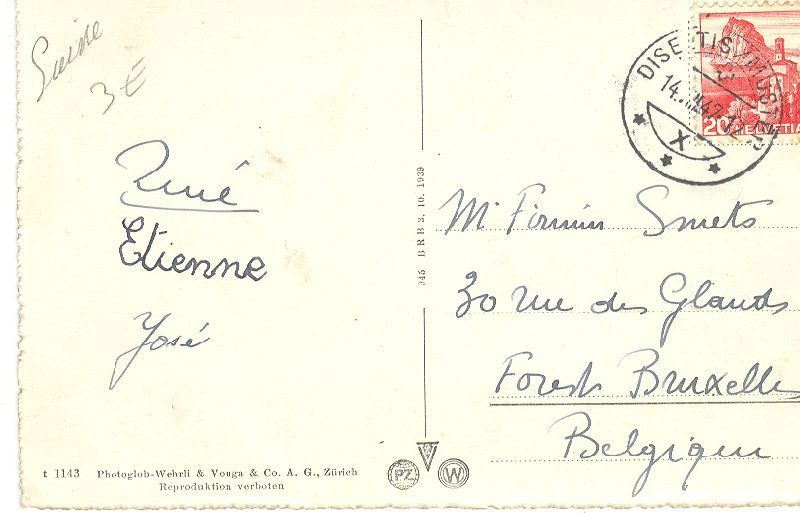 Suisse
3 €
René
Etienne
José
DISENTIS/MUSTER
14.
47-12
X
20 HELVETIA
945 BRB 3. 10. 1939
Mr Firmin Smets
30 rue des Glands
Forest Bruxelles
Belgique
t 1143 Photoglob-Wehrli & Vouga & Co. A. G., Zürich
Reproduktion verboten
PZ
W